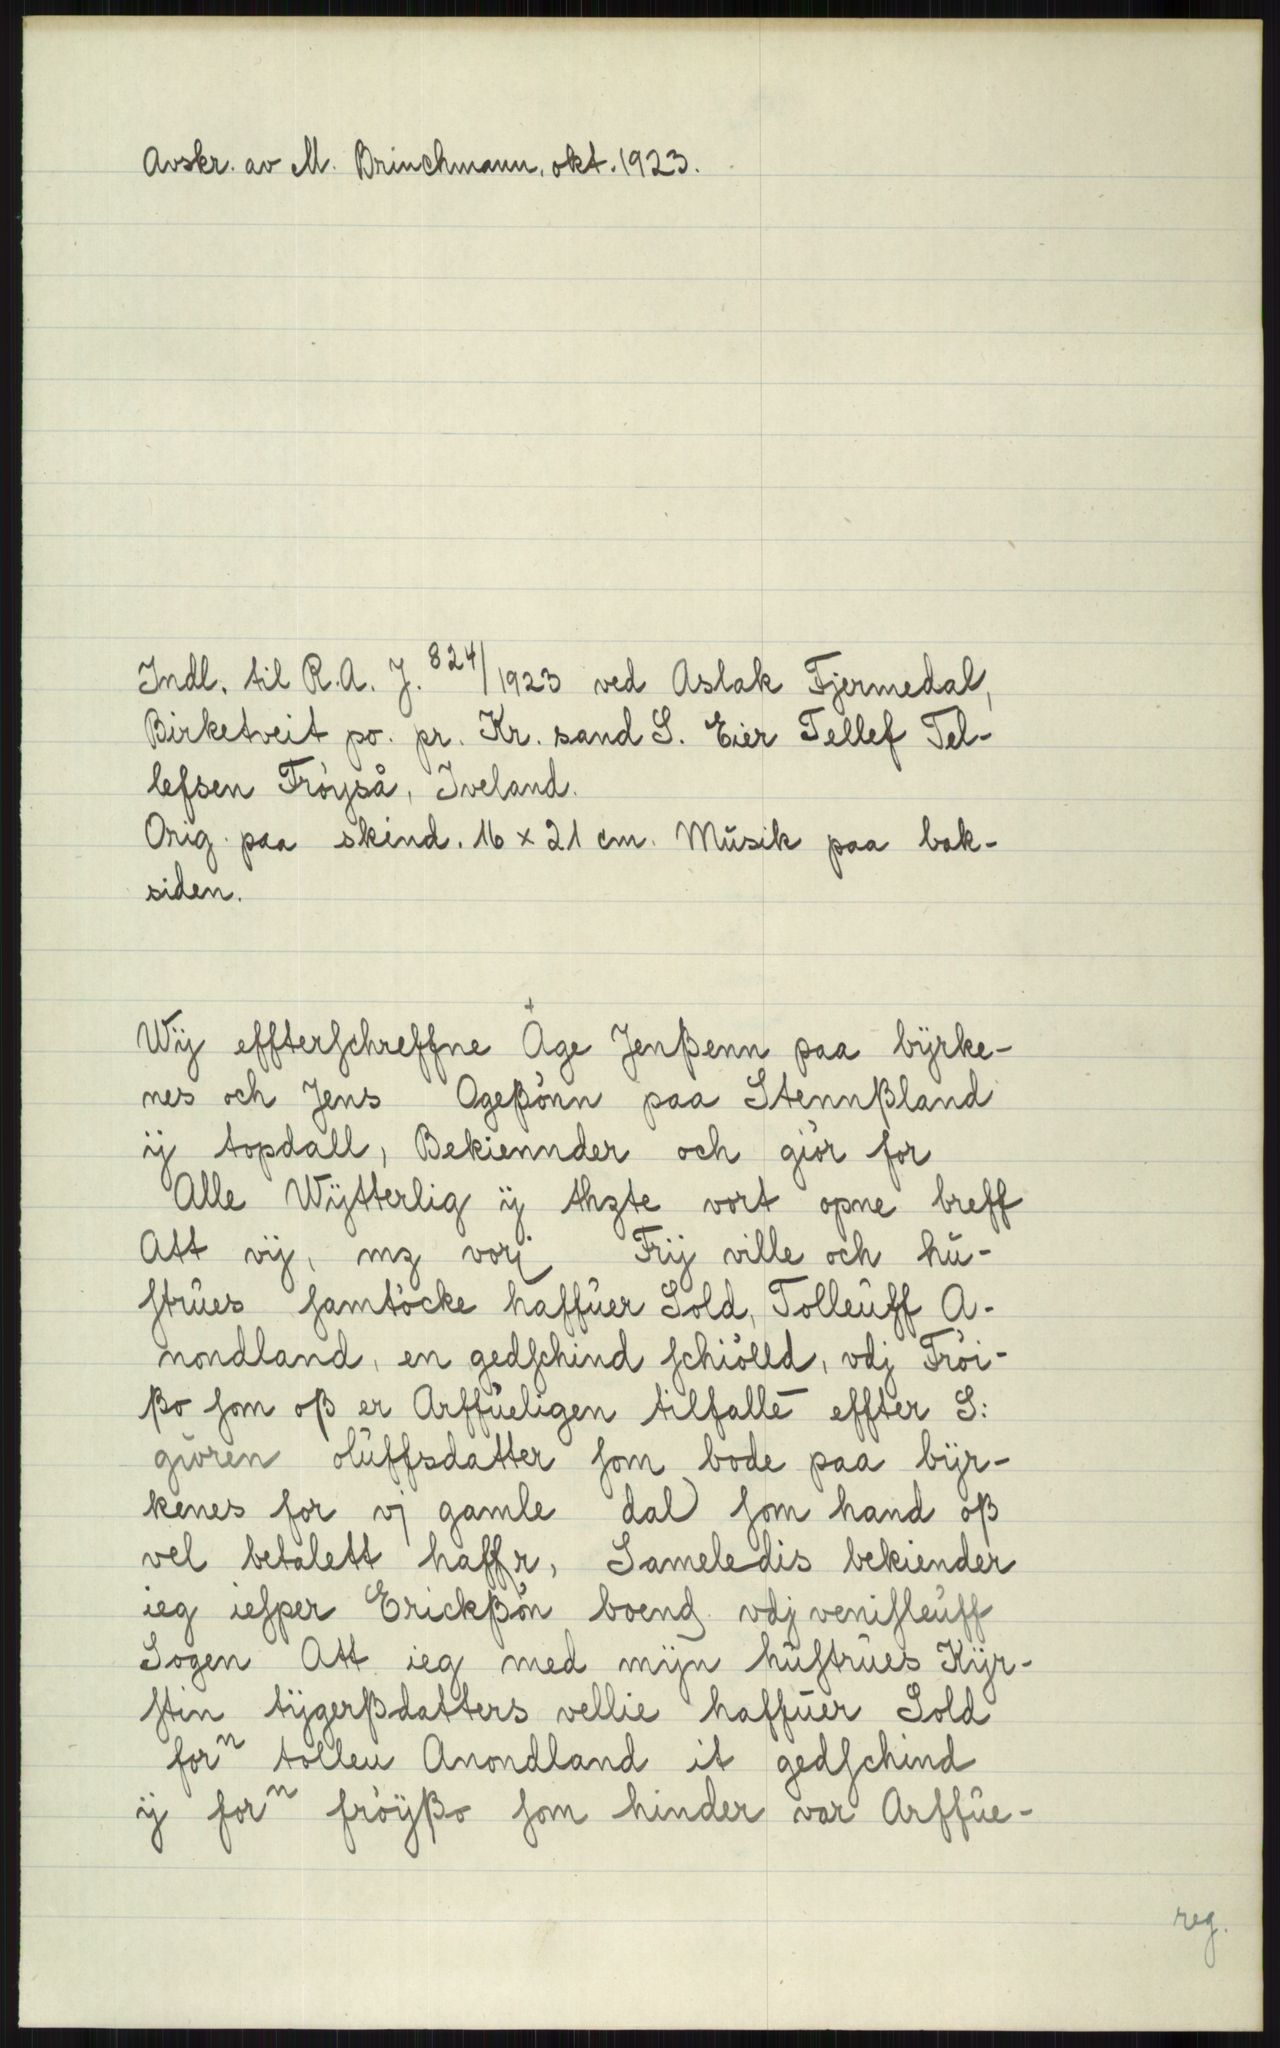 Avskr. av M. Brinchmann, okt. 1923.
Indl. til R.A. J. 824/1923 ved Aslak Fjermedal,
Birketveit po. pr. Kr. sand S. Eier Tellef Tel-
lefsen Frøyså, Iveland.
Orig. paa skind. 16 x 21 cm. Musik paa bak-
siden.
Wÿ effterſchreffne Åge Jenßenn paa bÿrke-
nes och Jens Ageßönn paa Stennßland
ÿ topdall, Bekiennder och giör for
Alle Wÿtterlig ÿ thzte vort opne breff
Att vÿ, mz vorj Frÿ ville och hu-
ſtrues ſamtöcke haffuer Sold, Tolleuff A-
nondland, en gedſchind ſchiölld, vdj Fröi-
ßo ſom oß er Arffueligen tilfallē effter S:
guren oluffsdatter ſom bode paa bÿr-
kenes for vj gamle dal ſom hand oß
vel betalett haffr, Sameledis bekiender
ieg ieſper Erickßön boend vdj veniſleuff
Sogen Att ieg med mÿn huſtrues Kÿr-
ſtin tÿgerßdatters vellie haffuer Sold
forn tolleu Anondland it gedſchind
ÿ forn fröÿßo ſom hinder var Arffue-
reg.